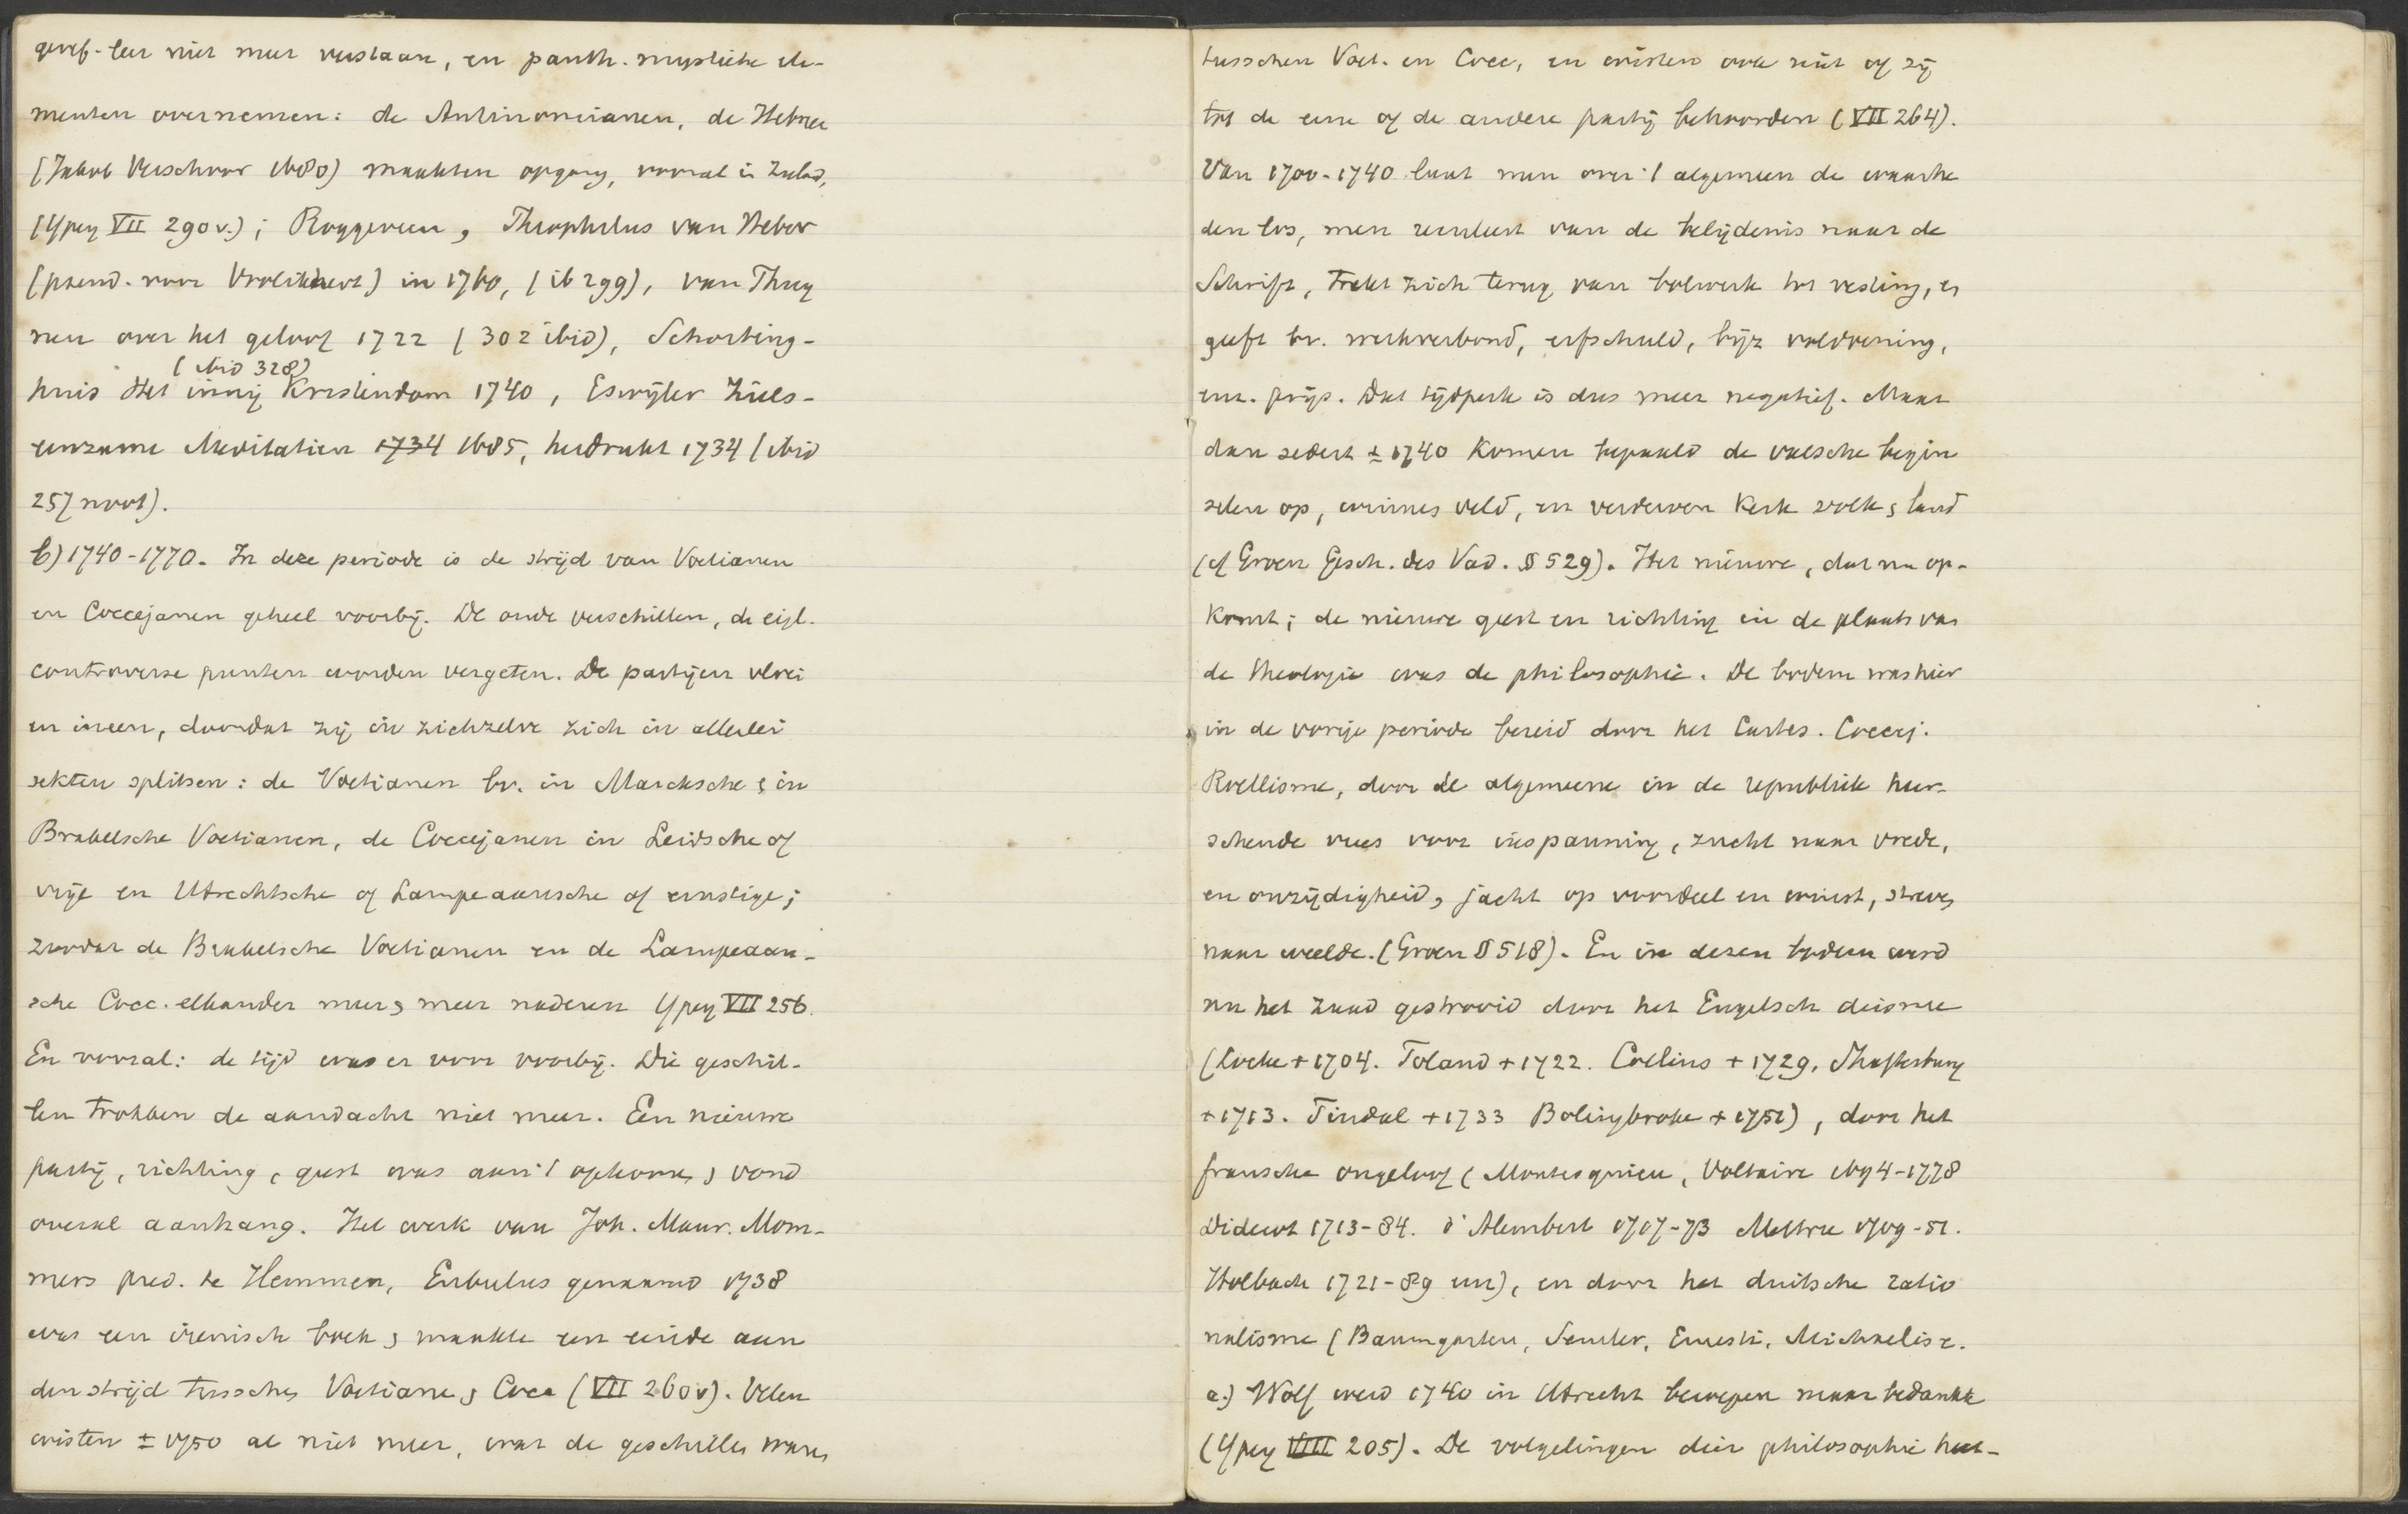 geref. leer niet meer verstaan, en panth. mystieke ele-
menten overnemen: de Antinomianen, de Hebree
(Jakob Verschoor 1680) maakten opgang, vooral in Zeeland,
(Ypey VII 290 v.); Roggeveen, Theophilus van Heber
(pseud. voor Vrolikhert) in 1760, (ib 299), van Thuy
nen over het geloof 1722 (302 ibid), Schorting-
(ibid 328)
huis Het innig Kristendom 1740, Eswijler Ziels-
eenzame Meditatien 1734 1685, herdrukt 1734 (ibid
257 noot).
b) 1740-1770. In deze periode is de strijd van Voetianen
en Coccejanen geheel voorbij. De oude verschillen, de eigl.
controverse punten worden vergeten. De partijen vloei
en ineen, doordat zij in zichzelve zich in allerlei
sekten splitsen: de Voetianen bv. in Marcksche & in
Brakelsche Voetianen, de Coccejanen in Leidsche of
vrije en Utrechtsche of Lampeaansche of ernstige;
zoodat de Brakelsche Voetianen en de Lampeaan-
sche Cocc. elkander meer & meer naderen Ypey VII 256.
En vooral: de tijd was er voor voorbij. Die geschil-
len trokken de aandacht niet meer. Een nieuwe
partij, richting, geest was aan 't opkomen & vond
overal aanhang. Het werk van Joh. Maur. Mom-
mers pred. te Hemmen, Eubulus genaamd 1738
was een irenisch boek & maakte een einde aan
den strijd tusschen Voetiane & Cocc (VII 260 v). Velen
wisten ± 1750 al niet meer, wat de geschillen waren
tusschen Voet. en Cocc, en wisten ook niet of zij
tot de eene of de andere partij behoorden (VII 264).
Van 1700-1740 laat men over 't algemeen de waarhe
den los, men recerleert van de belijdenis naar de
Schrift, trekt zich terug van bolwerk tot vesting, er
geeft bv. werkverbond, erfschuld, bijz voldoening,
enz. prijs. Dat tijdperk is dus meer negatief. Maar
dan sedert ± 1740 komen bepaald de valsche begin
selen op, winnen veld, en verderven kerk volk & land
(cf Groen Gesch. des Vad. § 529). Het nieuwe, dat nu op-
komt; de nieuwe geest en richting in de plaats van
de theologie was de philosophie. De bodem was hier
in de vorige periode bereid door het Cartes. Coccej.
Roellisme, door de algemeene in de republiek heer-
schende vrees voor inspanning, zucht naar vrede,
en onzijdigheid, jacht op voordeel en winst, streven
naar weelde. (Groen § 518). En in dezen bodem werd
nu het zaad gestrooid door het Engelsch deisme
(Locke + 1704. Toland + 1722. Collins + 1729, Shaftesbury
+ 1713. Tindal + 1733 Bolingbroke + 1751), door het
fransche ongeloof (Montesquieu, Voltaire 1694-1778
Diderot 1713-84. d'Alembert 1717-73 Mettrie 1709-51.
Holbach 1721-89 enz), en door het duitsche ratio
nalisme (Baumgarten, Semler, Ernesti, Michaelis e.
a.) Wolf werd 1740 in Utrecht beroepen maar bedankte
(Ypey VIII 205). De volgelingen dier philosophie hoe-